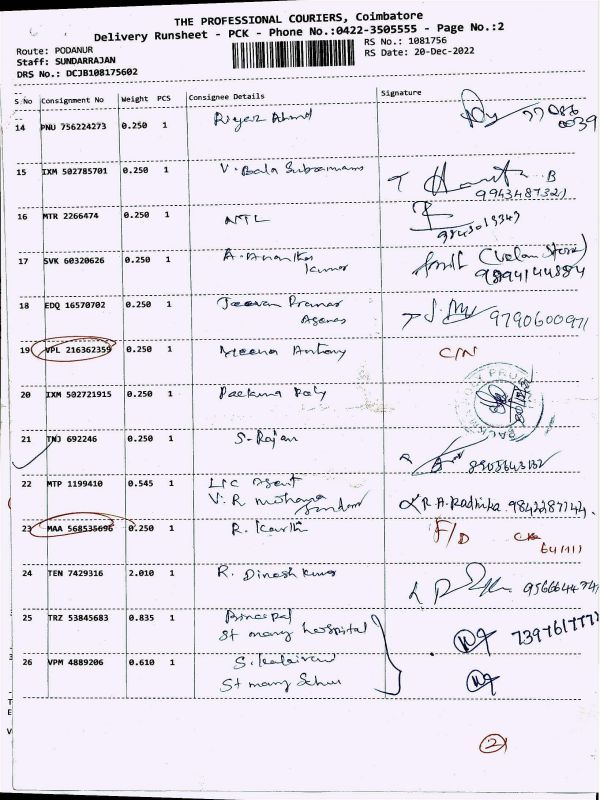 THE PROFESSIONAL COURIERS, Coimbatore
Delivery Runsheet - PCK - Phone No.:0422-3505555 - Page No.:2
Route: PODANUR
Staff: SUNDARRAJAN
DRS No.: DCJB108175602
RS No.: 1081756
RS Date: 20-Dec-2022
S No Consignment No Weight PCS Consignee Details Signature
14 PNU 756224273 0.250 1 Riyaz Ahmed
15 IXM 502785701 0.250 1 V. Bala Subramani
9943487321
16 MTR 2266474 0.250 1 NTL
17 SVK 60320626 0.250 1 A. Anantha Kumar (Velan Store)
9894144884
18 EDQ 16570702 0.250 1 9790600971
19 VPL 216362359 0.250 1 Meena Antony C/N
20 IXM 502721915 0.250 1
21 TNJ 692246 0.250 1 S. Rajan
8903643132
22 MTP 1199410 0.545 1 LIC Agent
V. R Mohana Sundar R.A. Radhika 9842287744
23 MAA 568535696 0.250 1 R. Karthi F/D
641111
24 TEN 7429316 2.010 1 R. Dinesh Kumar
25 TRZ 53845683 0.835 1 Principal
St mary hospital 7397617777
26 VPM 4889206 0.610 1
St mary
2